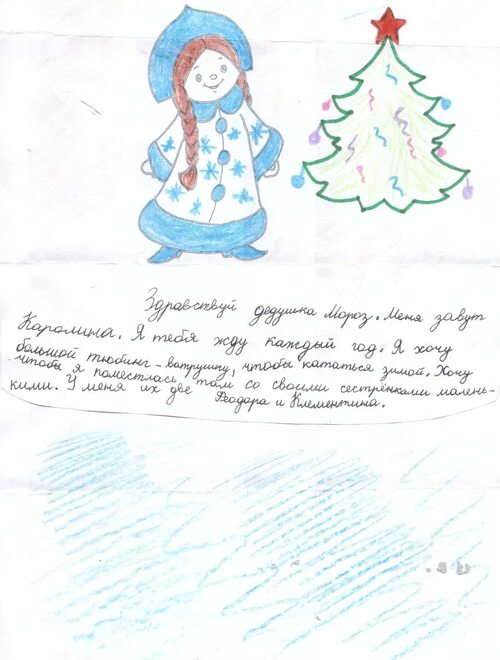 Здравствуй дедушка Мороз. Меня завут
Каролина. Я тебя жду каждый год. Я хочу
большой тюбинг-ватрушку, чтобы кататься зимой. Хочу
чтобы я поместлась там со своими сестрёнками малень-
кими. У меня их две Феодора и Клементина.